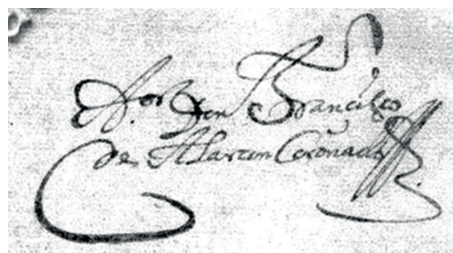 Don Francisco
de Alarcon Coronado